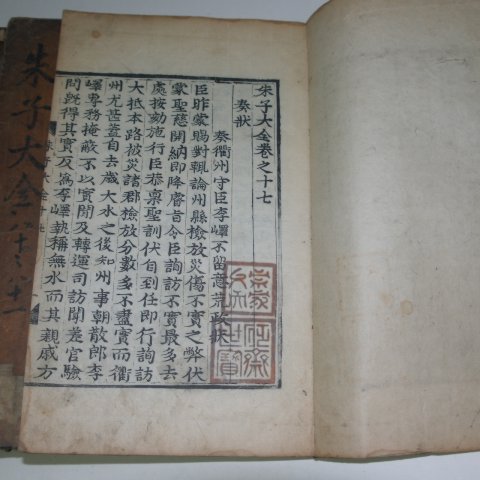 朱子大全卷之十七
奏狀
奏衢州守臣李嶧不留意荒政狀
臣昨蒙賜對輒論州縣檢放災傷不實之弊伏
蒙聖慈開納即降睿旨令臣詢訪不實最多去
處按劾施行臣恭稟聖訓伏自到任即行詢訪
大抵本路被災諸郡檢放分數多不盡實而衢
州尤甚蓋自去歲大水之後知州事朝散郎李
嶧專務掩蔽不以實聞及轉運司訪聞差官驗
問旣得其實及爲李嶧執稱無水而其親戚方
朱子大全